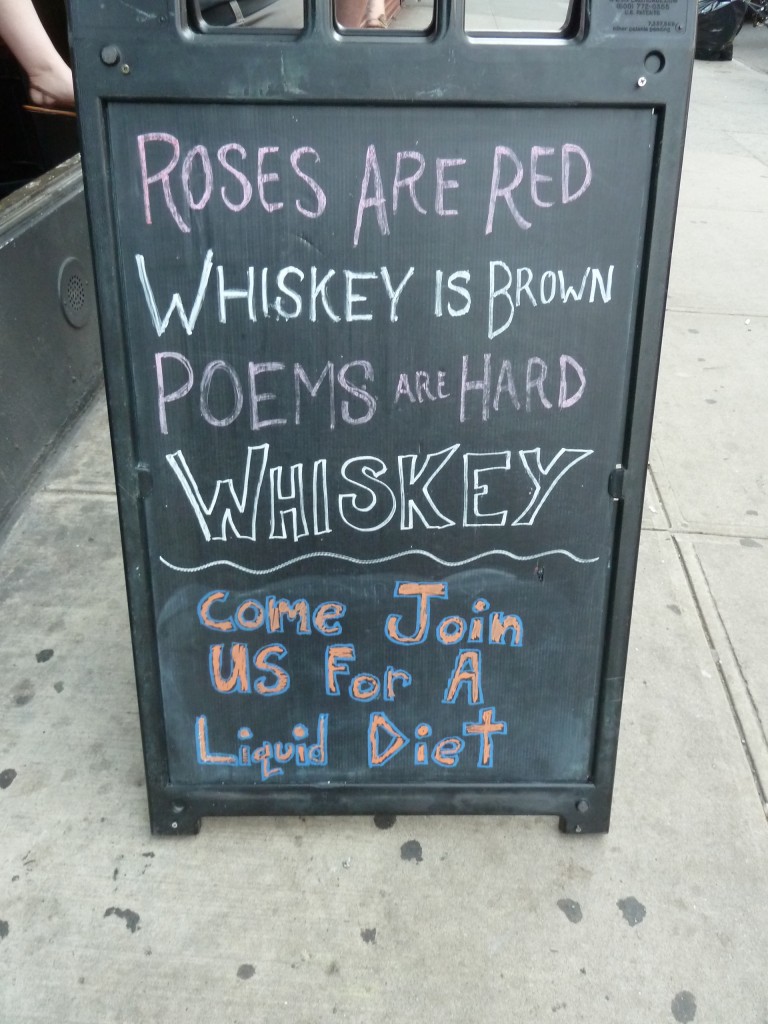 ROSES ARE RED
WHISKEY IS BROWN
POEMS ARE HARD
WHISKEY
COME JOIN
US FOR A
LIQUID DIET